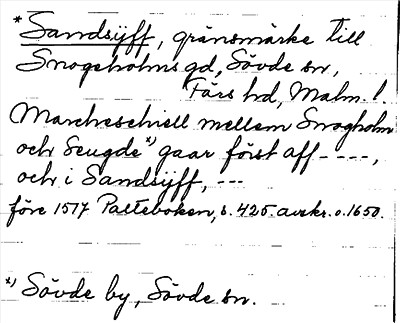 * Sandsÿff, gränsmärke till
Snogeholms gd, Sövde sn,
Färs hd, Malm. l.
Marcheschiell mellem Snogholm
och Seugde *) gaar först aff ----,
och i Sandsÿff, ---
före 1517 Palteboken, s. 425. avskr. o. 1650.
*) Sövde by, Sövde sn.